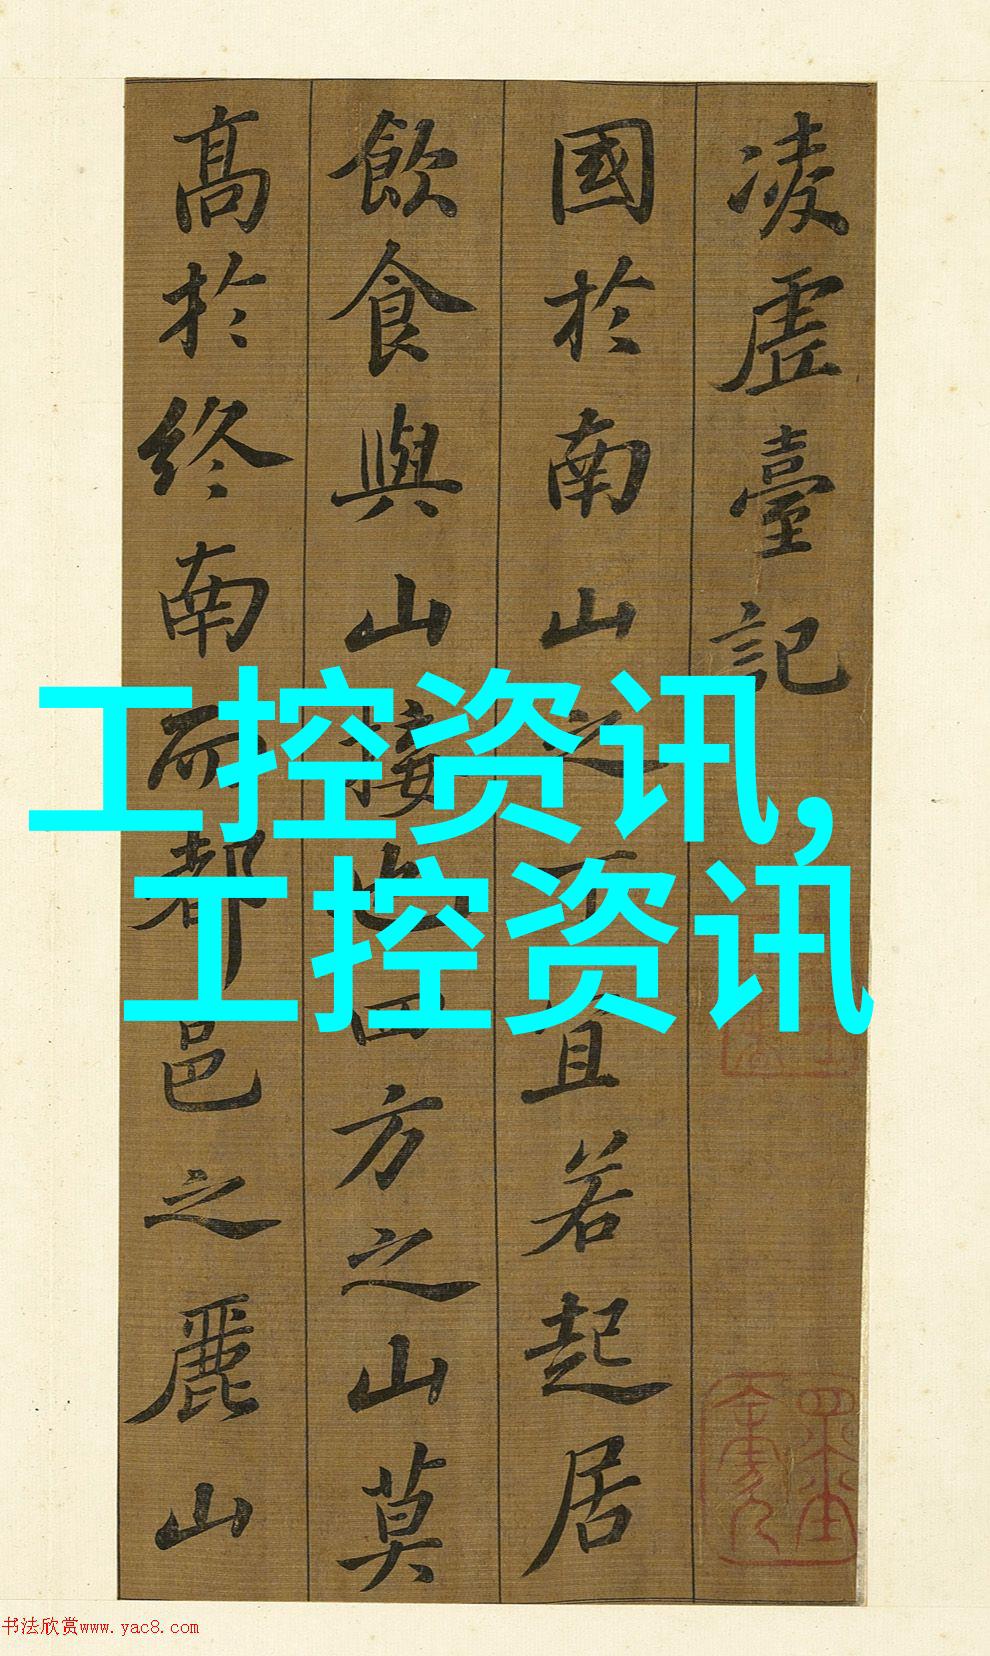 凌虛臺記
國於南山之下宜若起居
飲食與山接也四方之山莫
高於終南而都邑之麗山
工控资讯,
工控资讯
书法欣赏www.yac8.com